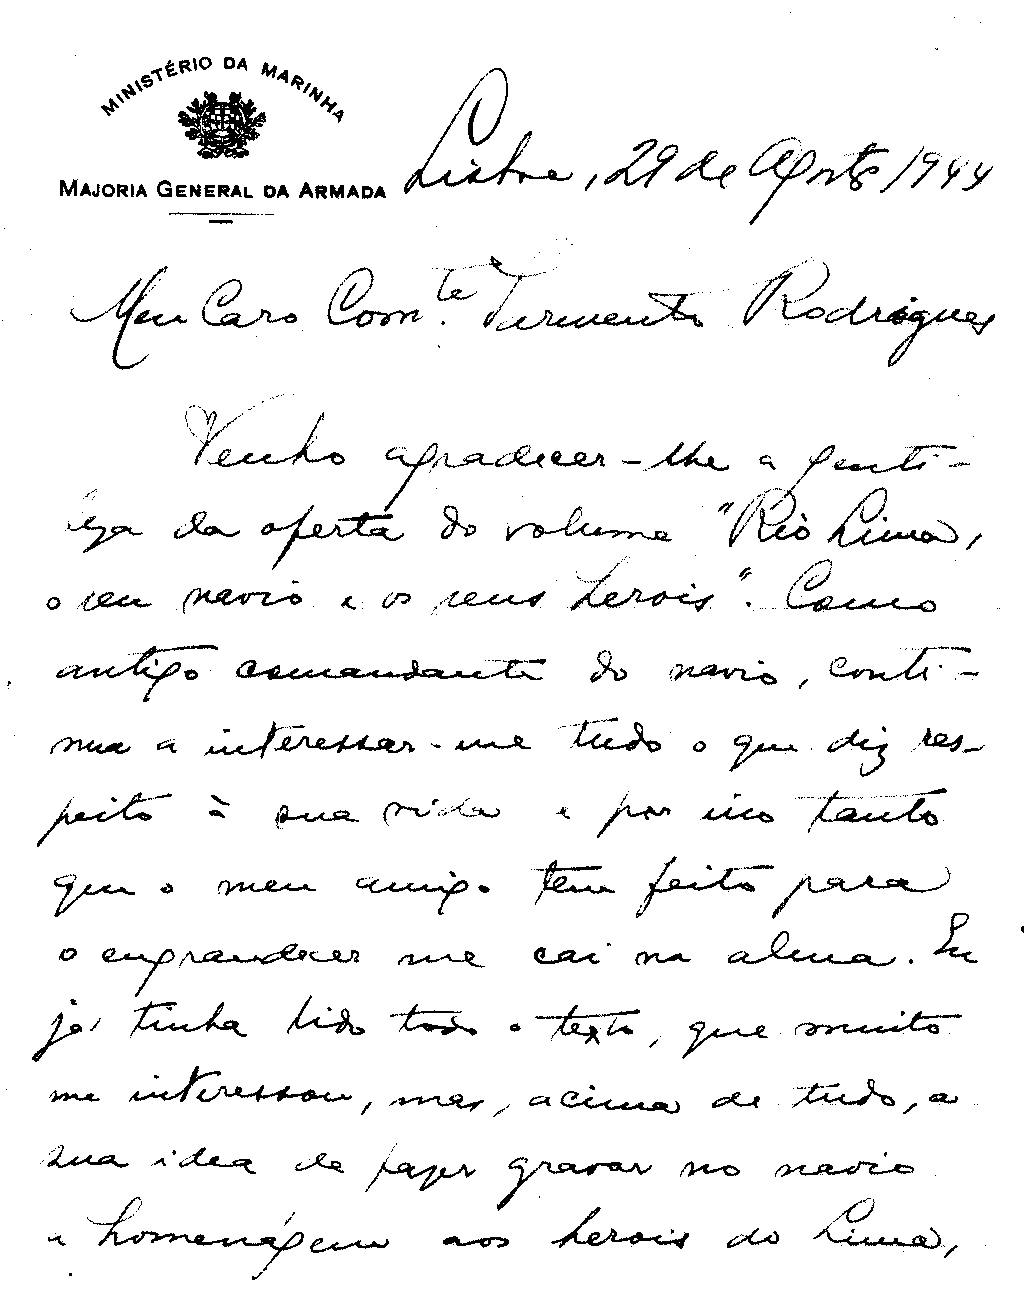 MINISTÉRIO DA MARINHA
MAJORIA GENERAL DA ARMADA
Lisboa, 29 de Agosto 1944
Meu Caro Com.te Sarmento Rodrigues
Venho agradecer-lhe a genti-
leza da oferta do volume "Rio Lima,
o seu navio e os seus herois". Como
antigo comandante do navio, conti-
nua a interessar-me tudo o que diz res-
peito à sua vida e por isso tanto
que o meu amigo tem feito para
o engrandecer me cai na alma. Eu
já tinha lido todo o texto, que muito
me interessou, mas, acima de tudo, a
sua idea de fazer gravar no navio
a homenágem aos herois do Lima,